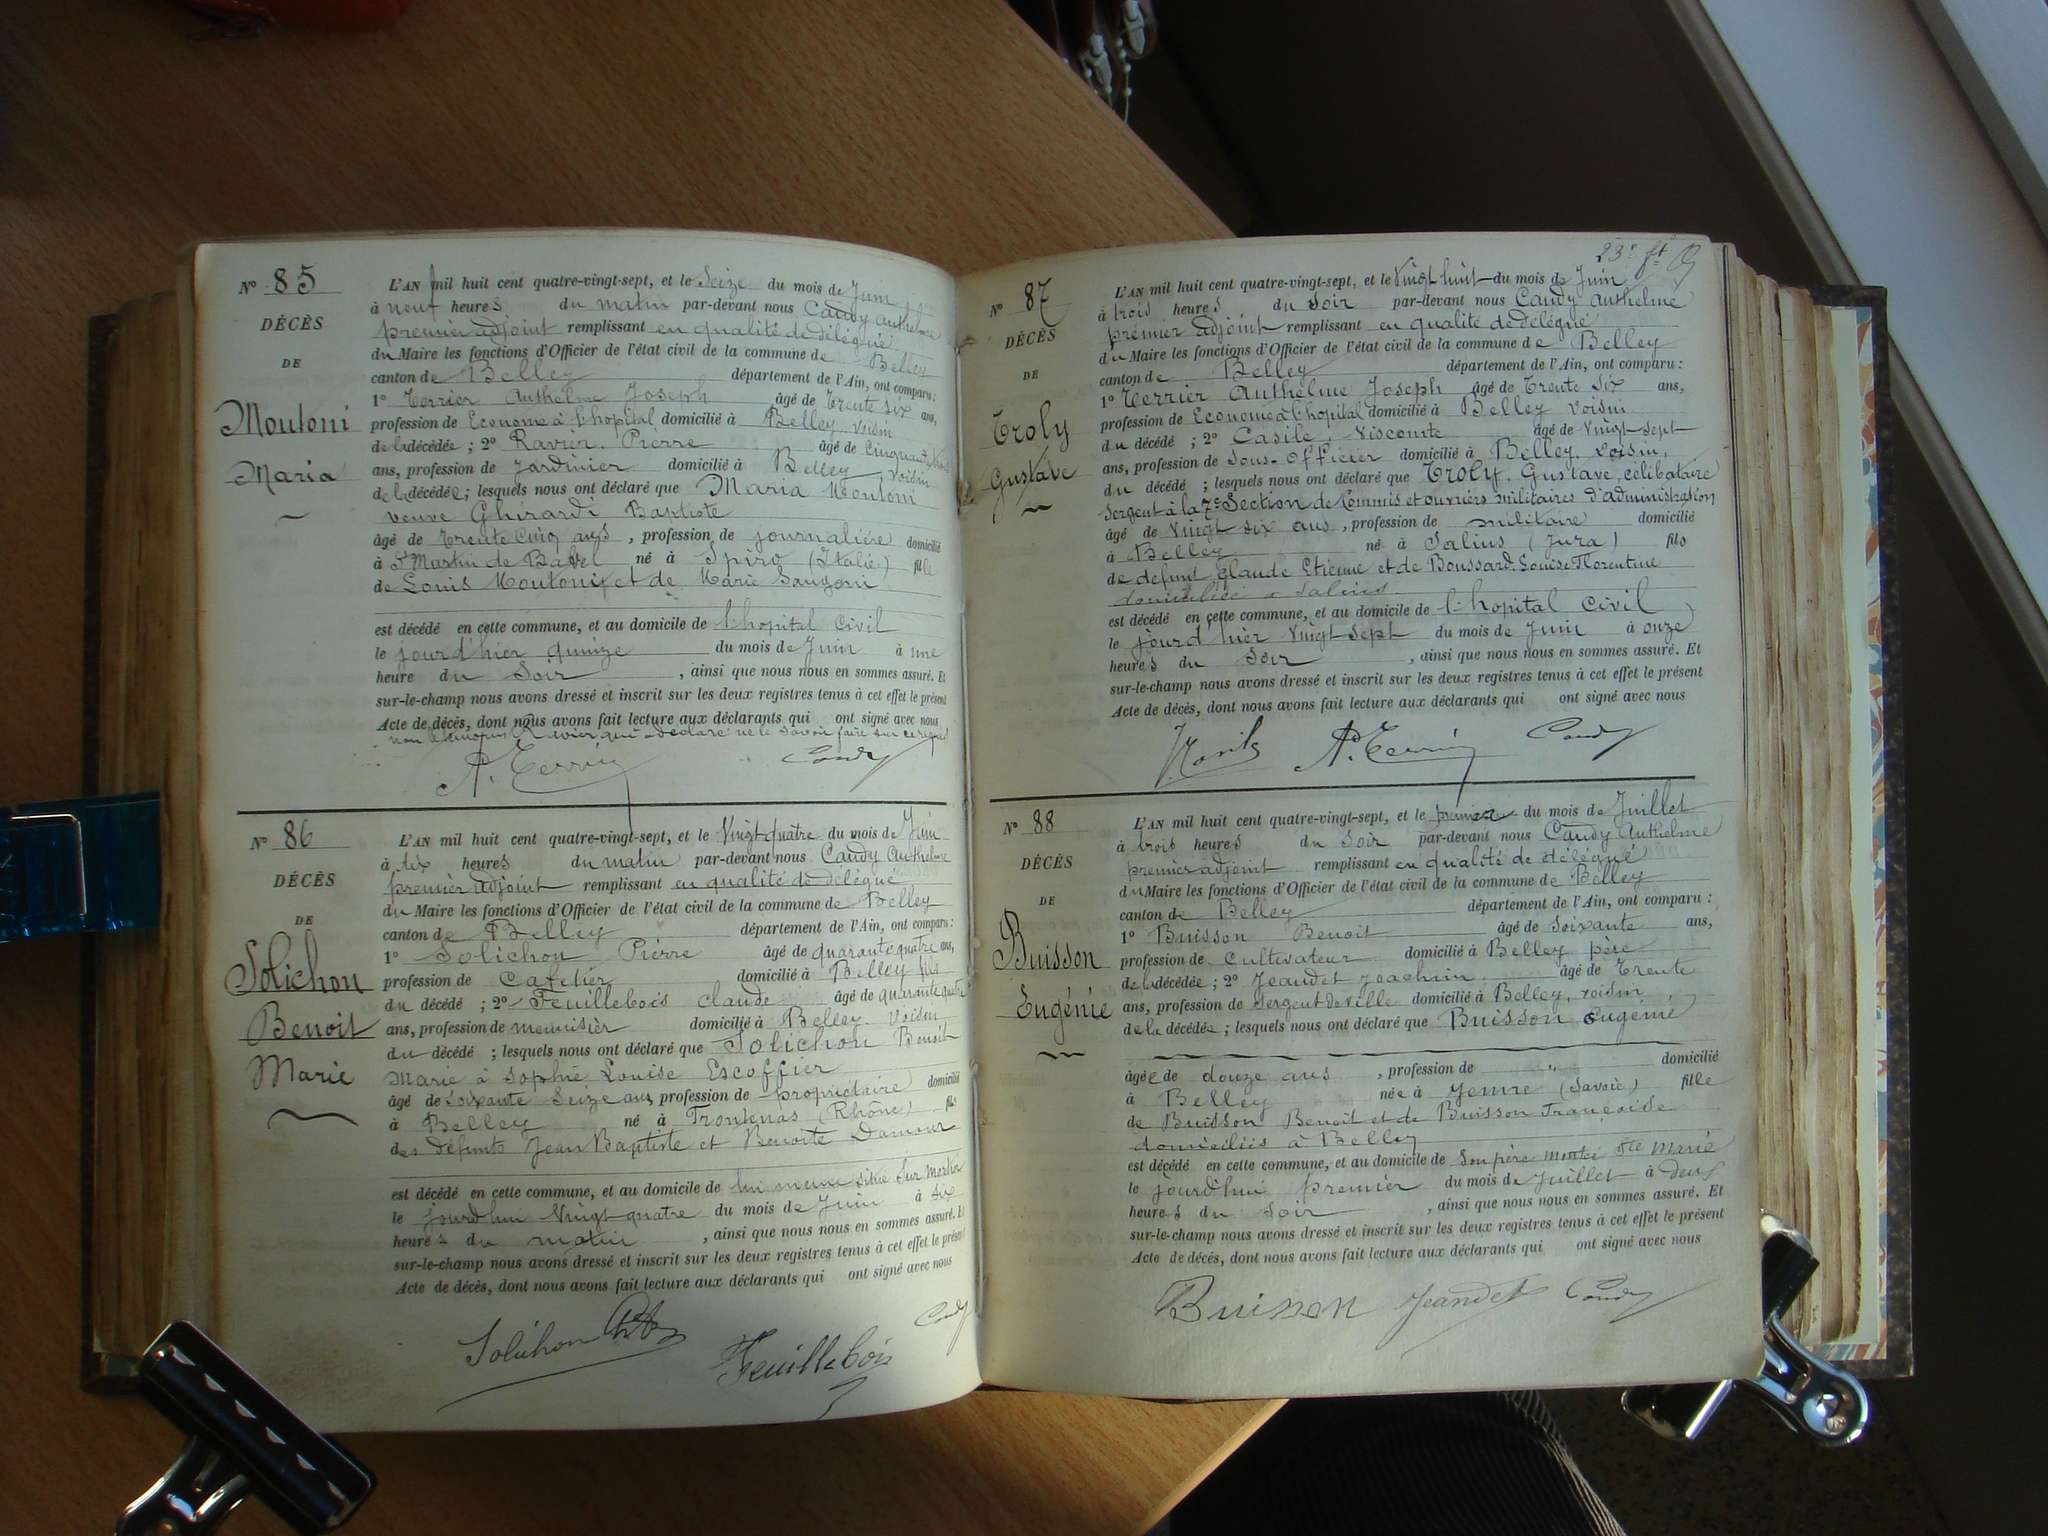 No 85
DÉCÈS
DE
Moutoni
Maria
L'AN mil huit cent quatre-vingt-sept, et le Seize du mois de Juin
à neuf heures du matin par-devant nous Candy Anthelme
premier adjoint remplissant en qualité de délégué
du Maire les fonctions d'Officier de l'état civil de la commune de Belley
canton de Belley département de l'Ain, ont comparu :
1° Terrier Anthelme Joseph âgé de Trente six ans,
profession de Econome à l'hopital domicilié à Belley voisin
de la décédée ; 2° Ravier Pierre âgé de Cinquante
ans, profession de Jardinier domicilié à Belley voisin
de la décédée ; lesquels nous ont déclaré que Maria Moutoni
veuve Ghirardi Baptiste
âgé de Trente cinq ans, profession de journalière domicilié
à St Martin de Bavel né à Spiro (Italie) fille
de Louis Moutoni et de Marie Sangoni
est décédé en cette commune, et au domicile de l'hopital Civil
le jourd'hier quinze du mois de Juin à une
heure du Soir , ainsi que nous nous en sommes assuré. Et
sur-le-champ nous avons dressé et inscrit sur les deux registres tenus à cet effet le présent
Acte de décès, dont nous avons fait lecture aux déclarants qui ont signé avec nous
non le témoin Ravier qui a déclaré ne le savoir faire sur ce requis
A. Terrier Candy
No 86
DÉCÈS
DE
Solichon
Benoit
Marie
L'AN mil huit cent quatre-vingt-sept, et le Vingt quatre du mois de Juin
à dix heures du matin par-devant nous Candy Anthelme
premier adjoint remplissant en qualité de délégué
du Maire les fonctions d'Officier de l'état civil de la commune de Belley
canton de Belley département de l'Ain, ont comparu :
1° Solichon Pierre âgé de quarante quatre ans,
profession de Cafetier domicilié à Belley fils
du décédé ; 2° Feuillebois Claude âgé de quarante quatre
ans, profession de menuisier domicilié à Belley voisin
du décédé ; lesquels nous ont déclaré que Solichon Benoit
Marie à Sophie Louise Escoffier
âgé de Soixante Seize ans, profession de propriétaire domicilié
à Belley né à Frontenas (Rhône) fils
des défunts Jean Baptiste et Benoite Damour
est décédé en cette commune, et au domicile de lui meme sitié Sur
le jourd'hui Vingt quatre du mois de Juin à six
heures du matin , ainsi que nous nous en sommes assuré. Et
sur-le-champ nous avons dressé et inscrit sur les deux registres tenus à cet effet le présent
Acte de décès, dont nous avons fait lecture aux déclarants qui ont signé avec nous
Solichon Candy
Feuillebois
23e ft
No 87
DÉCÈS
DE
Troly
Gustave
L'AN mil huit cent quatre-vingt-sept, et le Vingt huit du mois de Juin
à trois heures du Soir par-devant nous Candy Anthelme
premier adjoint remplissant en qualité de délégué
du Maire les fonctions d'Officier de l'état civil de la commune de Belley
canton de Belley département de l'Ain, ont comparu :
1° Terrier Anthelme Joseph âgé de Trente six ans,
profession de Econome à l'hopital domicilié à Belley voisin
du décédé ; 2° Casile, Viscomte âgé de Vingt Sept
ans, profession de Sous-Officier domicilié à Belley, voisin,
du décédé ; lesquels nous ont déclaré que Troly, Gustave, célibataire
Sergent à la 7e Section de Commis et ouvriers militaires d'administration
âgé de Vingt six ans, profession de militaire domicilié
à Belley né à Salins (Jura) fils
de defunt Claude Etienne et de Boussard Louise Florentine
domiciliée à Salins
est décédé en cette commune, et au domicile de l'hopital Civil
le jourd'hier Vingt Sept du mois de Juin à onze
heures du Soir , ainsi que nous nous en sommes assuré. Et
sur-le-champ nous avons dressé et inscrit sur les deux registres tenus à cet effet le présent
Acte de décès, dont nous avons fait lecture aux déclarants qui ont signé avec nous
A. Terrier Candy
No 88
DÉCÈS
DE
Buisson
Eugénie
L'AN mil huit cent quatre-vingt-sept, et le premier du mois de Juillet
à trois heures du Soir par-devant nous Candy Anthelme
premier adjoint remplissant en qualité de délégué
du Maire les fonctions d'Officier de l'état civil de la commune de Belley
canton de Belley département de l'Ain, ont comparu :
1° Buisson Benoit âgé de Soixante ans,
profession de Cultivateur domicilié à Belley père
de la décédée ; 2° Jeandet Joachim âgé de Trente
ans, profession de Sergent de ville domicilié à Belley, voisin
de la décédée ; lesquels nous ont déclaré que Buisson Eugénie
âgée de douze ans , profession de " domicilié
à Belley née à Yenne (Savoie) fille
de Buisson Benoit et de Buisson Françoise
domiciliés à Belley
est décédé en cette commune, et au domicile de Son père montée Ste Marie
le jourd'hui premier du mois de Juillet à deux
heures du Soir , ainsi que nous nous en sommes assuré. Et
sur-le-champ nous avons dressé et inscrit sur les deux registres tenus à cet effet le présent
Acte de décès, dont nous avons fait lecture aux déclarants qui ont signé avec nous
Buisson Jeandet Candy